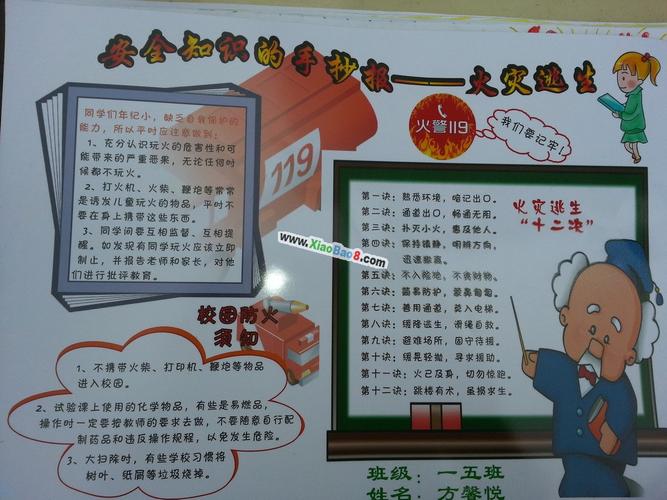 安全知识的手抄报——火灾逃生
同学们年纪小，缺乏自我保护的
能力，所以平时应注意做到：
1、充分认识玩火的危害性和可
能带来的严重恶果，无论任何时
候都不玩火。
2、打火机、火柴、鞭炮等常常
是诱发儿童玩火的物品，平时不
要在身上携带这些东西。
3、同学间要互相监督、互相提
醒。如发现有同学玩火应该立即
制止，并报告老师和家长，对他
们进行批评教育。
119
火警119
我们要记牢！
火灾逃生
“十二决”
第一诀：熟悉环境，暗记出口。
第二诀：通道出口，畅通无阻。
第三诀：扑灭小火，惠及他人。
第四诀：保持镇静，明辨方向，
迅速撤离。
第五诀：不入险地，不贪财物。
第六诀：简易防护，蒙鼻匍匐。
第七诀：善用通道，莫入电梯。
第八诀：缓降逃生，滑绳自救。
第九诀：避难场所，固守待援。
第十诀：缓晃轻抛，寻求援助。
第十一诀：火已及身，切勿惊跑。
第十二诀：跳楼有术，虽损求生。
www.XiaoBao8.com
校园防火
须知
1、不携带火柴、打印机、鞭炮等物品
进入校园。
2、试验课上使用的化学物品，有些是易燃品，
操作时一定要按教师的要求去做，不要随意自行配
制药品和违反操作规程，以免发生危险。
3、大扫除时，有些学校习惯将
树叶、纸屑等垃圾烧掉。
班级：一五班
姓名：方馨悦